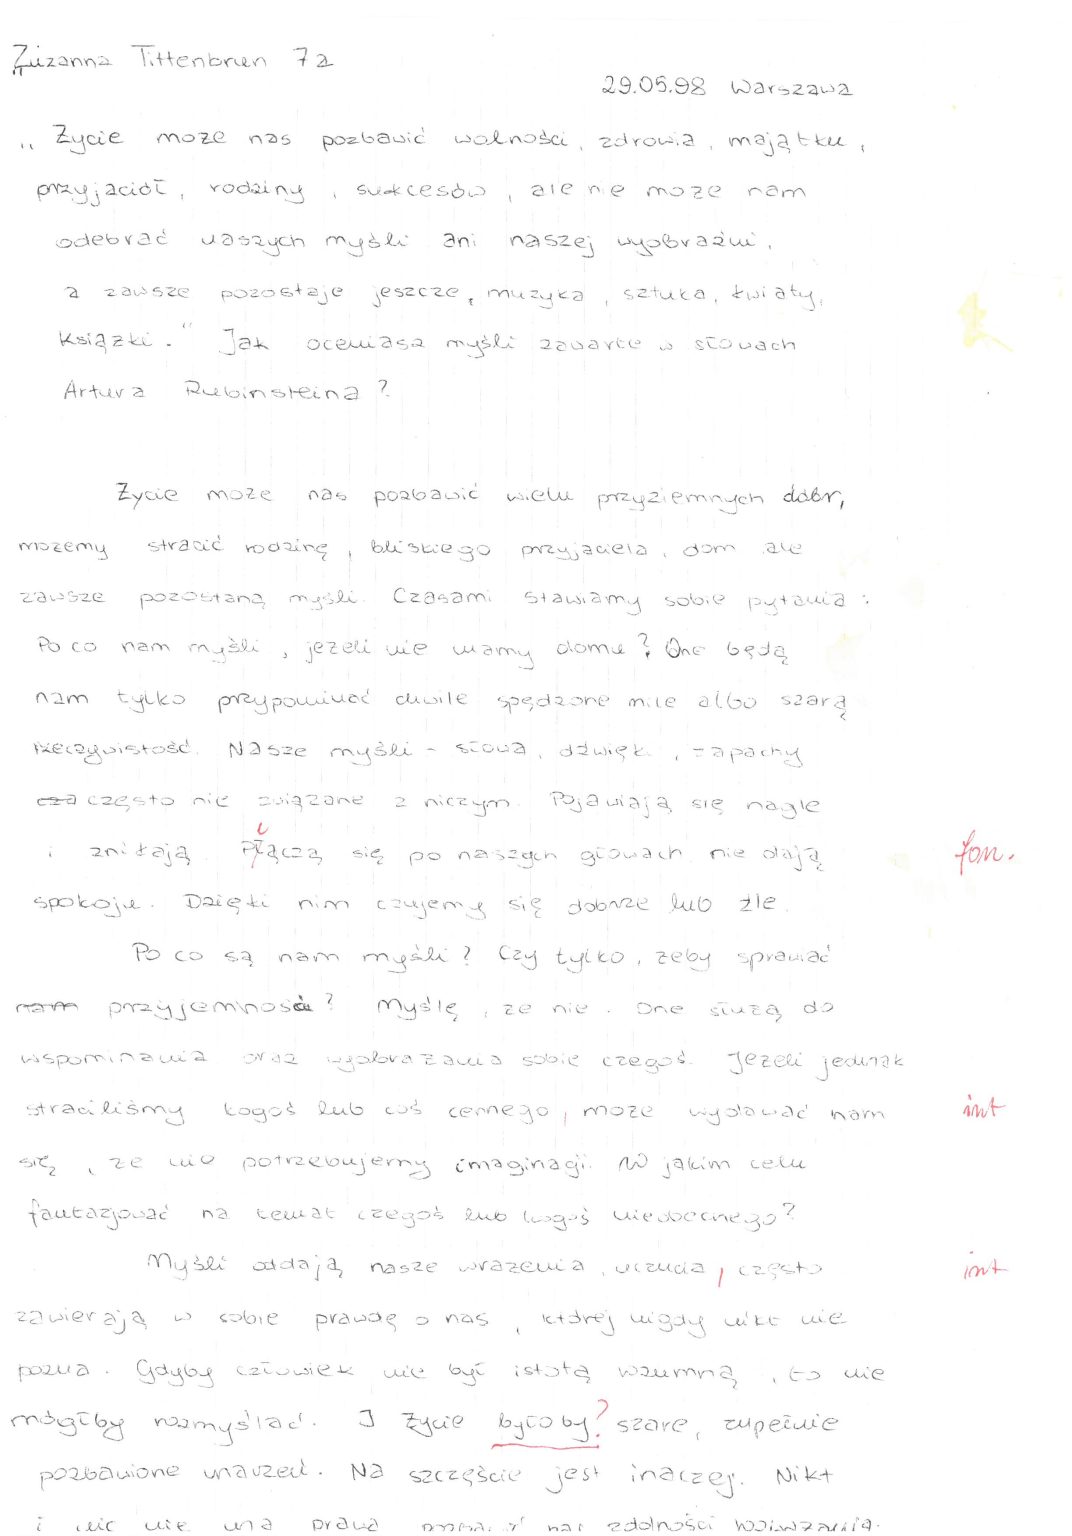 Zuzanna Tittenbrun 7a
29.05.98 Warszawa
„Życie może nas pozbawić wolności, zdrowia, majątku,
przyjaciół, rodziny, sukcesów, ale nie może nam
odebrać naszych myśli ani naszej wyobraźni,
a zawsze pozostaje jeszcze, muzyka, sztuka, kwiaty,
książki." Jak oceniasz myśli zawarte w słowach
Artura Rubinsteina?
Życie może nas pozbawić wielu przyziemnych dóbr,
możemy stracić rodzinę, bliskiego przyjaciela, dom ale
zawsze pozostaną myśli. Czasami stawiamy sobie pytania:
Po co nam myśli, jeżeli nie mamy domu? One będą
nam tylko przypominać chwile spędzone mile albo szarą
rzeczywistość. Nasze myśli - słowa, dźwięki, zapachy
cza często nie związane z niczym. Pojawiają się nagle
i znikają. Płączą się po naszych głowach nie dają
fon.
spokoju. Dzięki nim czujemy się dobrze lub źle.
Po co są nam myśli? Czy tylko, żeby sprawiać
nam przyjemność? Myślę, że nie. One służą do
wspominania oraz wyobrażania sobie czegoś. Jeżeli jednak
straciliśmy kogoś lub coś cennego, może wydawać nam
int
się, że nie potrzebujemy imaginagi. W jakim celu
fantazjować na temat czegoś lub kogoś nieobecnego?
Myśli oddają nasze wrażenia, uczucia, często
int
zawierają w sobie prawdę o nas, której nigdy nikt nie
pozna. Gdyby człowiek nie był istotą rozumną, to nie
mógłby rozmyślać. I życie byłoby? szare, zupełnie
pozbawione marzeń. Na szczęście jest inaczej. Nikt
i nic nie ma prawa pozbawić nas zdolności